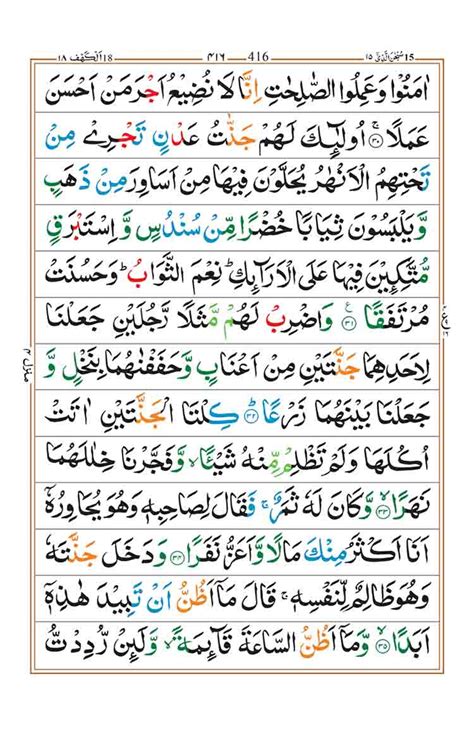 سُبْحٰنَ الَّذِیْ ١٥ 15 416 ٤١٦ اَلْكَهْف ١٨ 18
اٰمَنُوْا وَعَمِلُوا الصّٰلِحٰتِ اِنَّا لَا نُضِیْعُ اَجْرَ مَنْ اَحْسَنَ
عَمَلًا ۚ ٣٠ اُولٰٓئِكَ لَهُمْ جَنّٰتُ عَدْنٍ تَجْرِیْ مِنْ
تَحْتِهِمُ الْاَنْهٰرُ یُحَلَّوْنَ فِیْهَا مِنْ اَسَاوِرَ مِنْ ذَهَبٍ
وَّیَلْبَسُوْنَ ثِیَابًا خُضْرًا مِّنْ سُنْدُسٍ وَّاِسْتَبْرَقٍ
مُّتَّكِـِٕیْنَ فِیْهَا عَلَی الْاَرَآئِكِ ؕ نِعْمَ الثَّوَابُ ؕ وَحَسُنَتْ
مُرْتَفَقًا ٣١ وَاضْرِبْ لَهُمْ مَّثَلًا رَّجُلَیْنِ جَعَلْنَا
لِاَحَدِهِمَا جَنَّتَیْنِ مِنْ اَعْنَابٍ وَّحَفَفْنٰهُمَا بِنَخْلٍ وَّ
جَعَلْنَا بَیْنَهُمَا زَرْعًا ؕ ٣٢ كِلْتَا الْجَنَّتَیْنِ اٰتَتْ
اُكُلَهَا وَلَمْ تَظْلِمْ مِّنْهُ شَیْـًٔا ۙ وَّفَجَّرْنَا خِلٰلَهُمَا
نَهَرًا ۙ ٣٣ وَّكَانَ لَهٗ ثَمَرٌ ۚ فَقَالَ لِصَاحِبِهٖ وَهُوَ یُحَاوِرُهٗۤ
اَنَا اَكْثَرُ مِنْكَ مَالًا وَّاَعَزُّ نَفَرًا ٣٤ وَدَخَلَ جَنَّتَهٗ
وَهُوَ ظَالِمٌ لِّنَفْسِهٖ ۚ قَالَ مَاۤ اَظُنُّ اَنْ تَبِیْدَ هٰذِهٖۤ
اَبَدًا ۙ ٣٥ وَّمَاۤ اَظُنُّ السَّاعَةَ قَآئِمَةً ۙ وَّلَىِٕنْ رُّدِدْتُّ